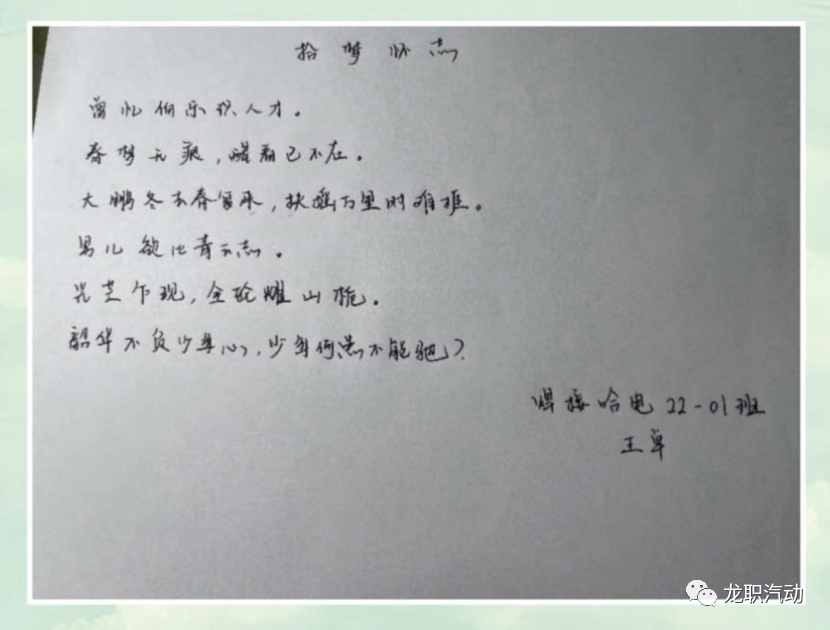 拾梦怀志
曾忆伯乐识人才。
春梦无痕,醒着已不在。
大鹏冬去春复来,扶摇万里时难挨。
男儿欲比青云志。
光芒乍现,金轮耀山
韶华不负少年心,少年何愁不能驰?
焊接哈电22-01班
王卓
龙职汽动